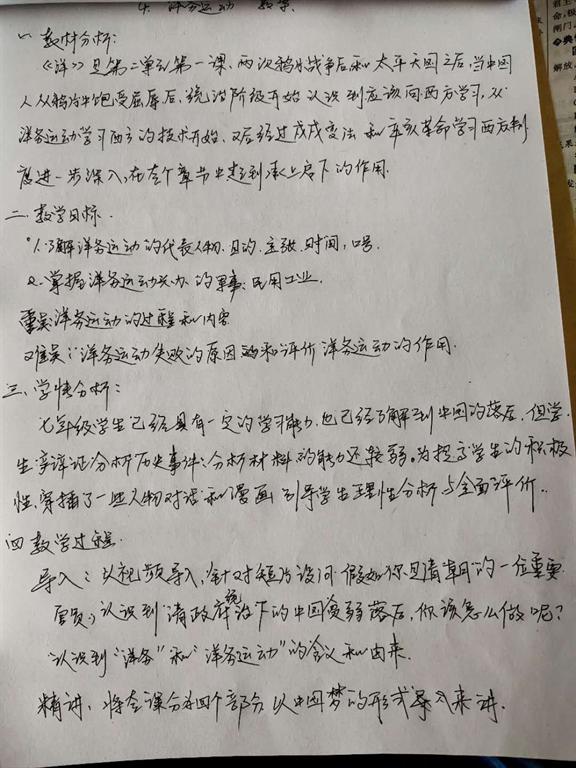 4. 洋务运动 教案.
一、教材分析:
《洋》是第二单元第一课, 两次鸦片战争后和太平天国之后, 当中国
人从鸦片中饱受屈辱后, 统治阶级开始认识到应该向西方学习, 从
洋务运动学习西方的技术开始, 又后经过戊戌变法和辛亥革命学习西方制
度进一步深入, 在全个章节中起到承上启下的作用.
二、教学目标.
1. 了解洋务运动的代表人物. 目的. 主张. 时间, 口号.
2. 掌握洋务运动兴办的军事、民用工业
重点: 洋务运动的过程和内容
难点: 洋务运动失败的原因和评价洋务运动的作用.
三、学情分析:
七年级学生已经具有一定的学习能力, 也已经了解到中国的落后, 但学
生辩证分析历史事件、分析材料的能力还较弱。为提高学生的积极
性, 穿插了一些人物对话和漫画, 引导学生理性分析与全面评价.
四 教学过程.
导入: 以视频导入, 针对短片设问 假如你是清朝的一位重要
官员, 认识到"清政府统治下的中国贫弱落后, 你该怎么做呢?
认识到"洋务"和"洋务运动"的含义和由来.
精讲, 将全课分为四个部分, 以中国梦的形式导入来讲.